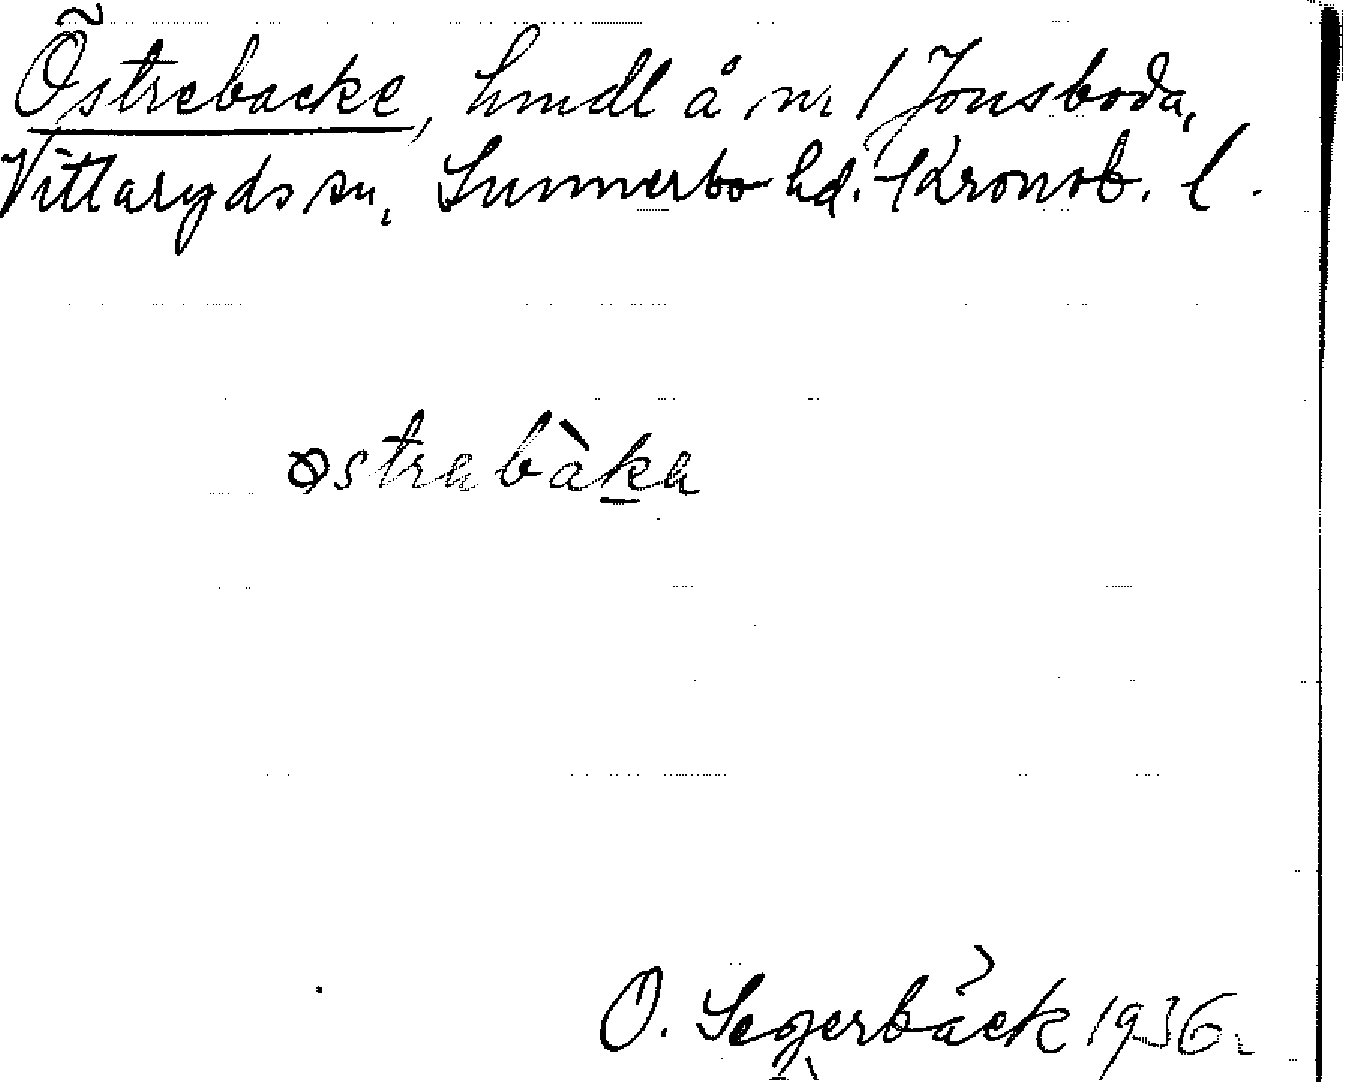 Östrebacke, hmdl å nr 1 Jonsboda,
Vittaryds sn, Sunnerbo hd. Kronob. l.
østrabàka
O. Segerbäck 1936.